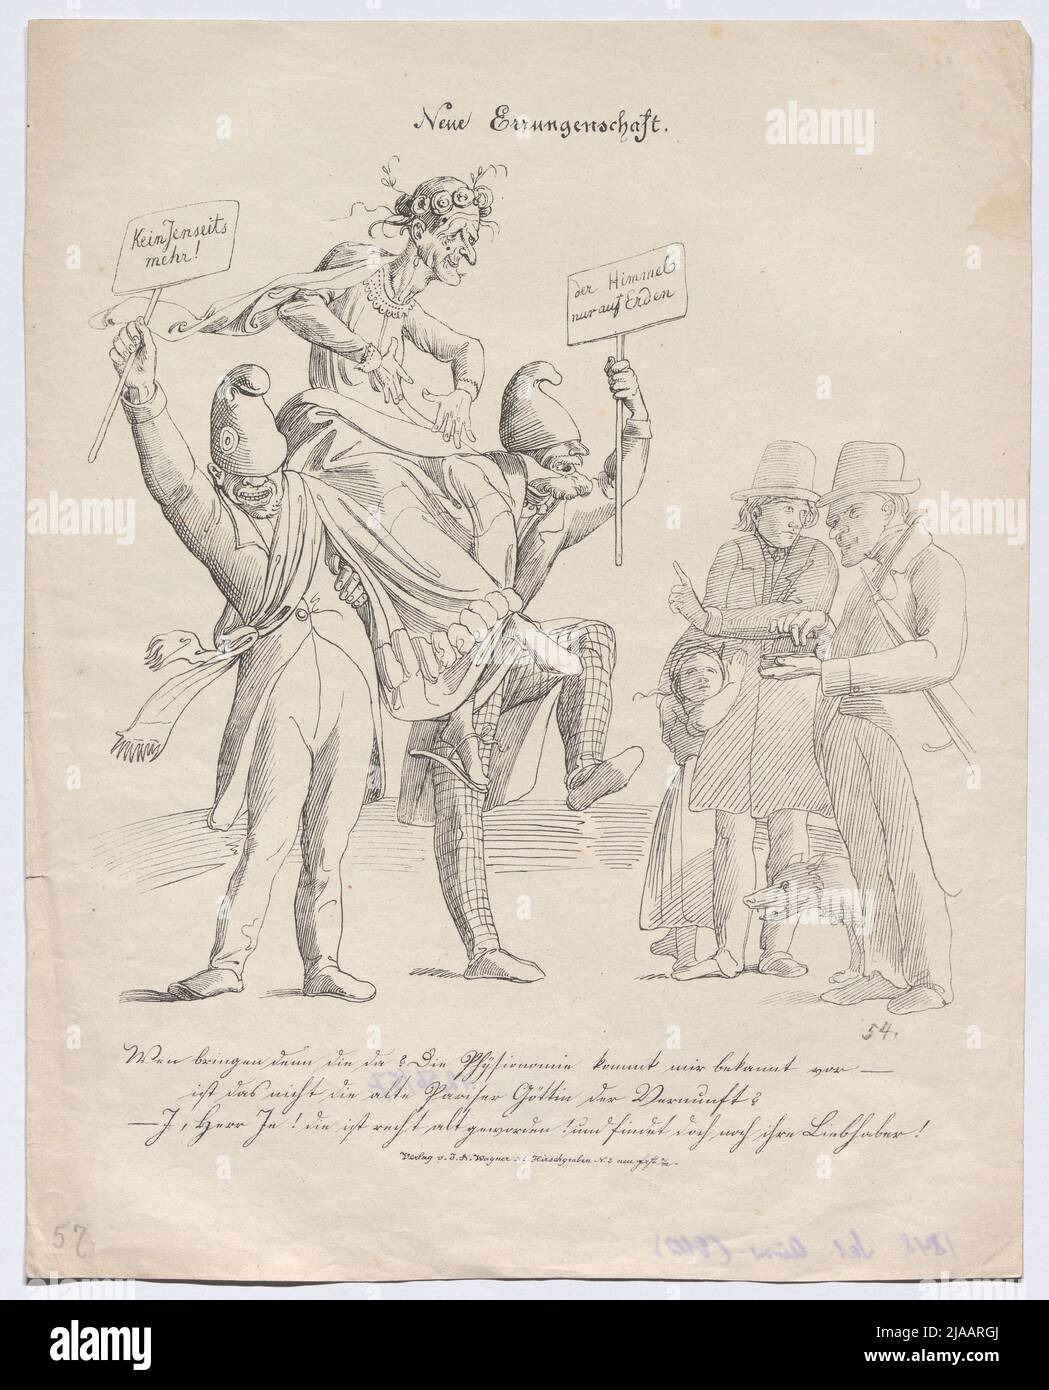 Neue Errungenschaft.
Kein Jenseits
mehr!
der Himmel
nur auf Erden
54.
Wen bringen denn die da? Die Physionomie kommt mir bekannt vor —
ist das nicht die alte Pariser Göttin der Vernunft?
— J, Herr Je! die ist recht alt geworden! und findet doch noch ihre Liebhaber!
Verlag v. J. N. Wagner Hirschgraben N. 2
57
alamy
2JAARGJ
www.alamy.com